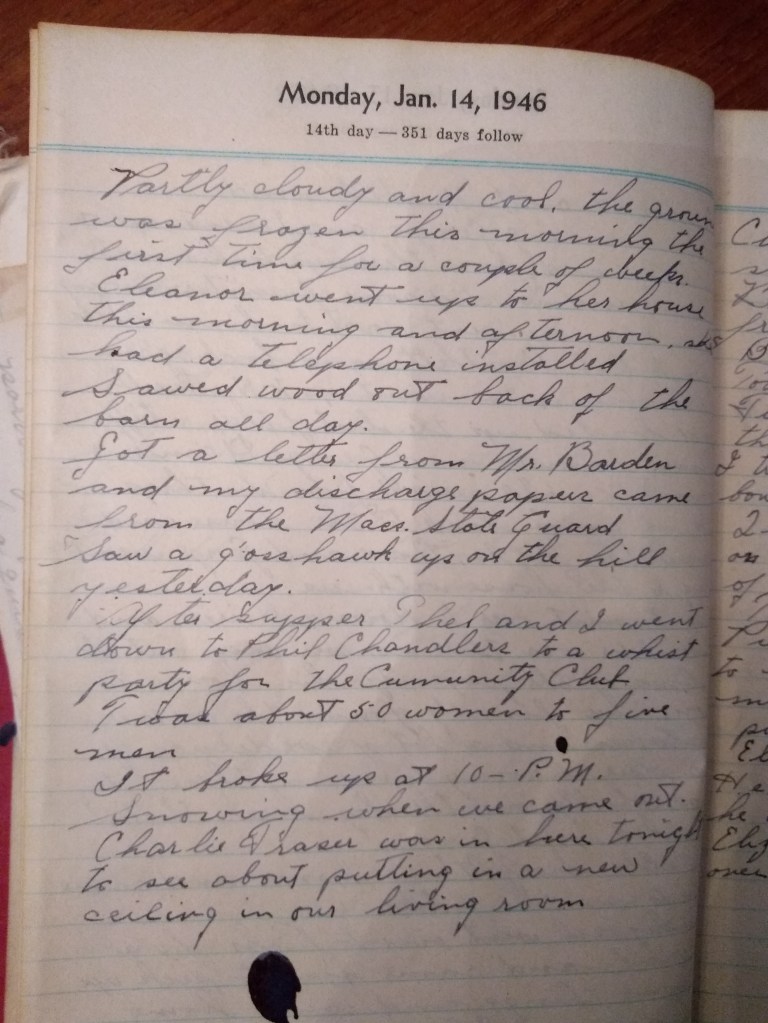 Monday, Jan. 14, 1946
14th day — 351 days follow
Partly cloudy and cool, the groun
was frozen this morning the
first time for a couple of weeks.
Eleanor went up to her house
this morning and afternoon, she
had a telephone installed
Sawed wood out back of the
barn all day.
Got a letter from Mr. Barden
and my discharge papers came
from the Mass. State Guard
Saw a goss hawk up on the hill
yesterday.
After supper Phel and I went
down to Phil Chandlers to a whist
party for the Cumunity Club
Twas about 50 women to five
men
It broke up at 10 - P.M.
Snowing when we came out.
Charlie Fraser was in here tonight
to see about putting in a new
ceiling in our living room